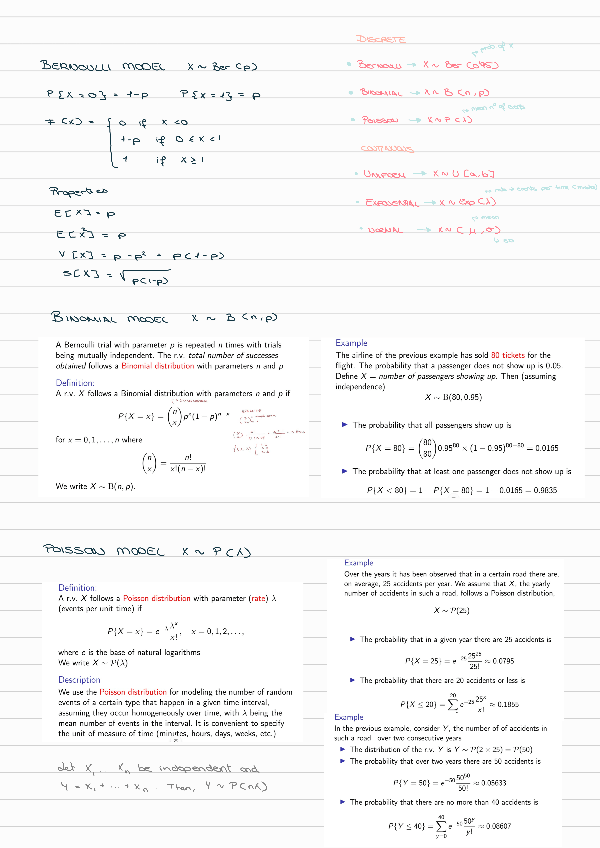 BERNOULLI MODEL X ~ Ber (p)
P{X=0} = 1-p P{X=1} = p
F(x) = { 0 if x<0
1-p if 0≤x<1
1 if x≥1
Properties
E[X] = p
E[X²] = p
V[X] = p-p² = p(1-p)
S[X] = √p(1-p)
DISCRETE
prob of x
• BERNOULLI → X ~ Ber (0.95)
• BINOMIAL → X ~ B (n, p)
• POISSON → X ~ P (λ)
CONTINUOUS
• UNIFORM → X ~ U [a,b]
• EXPONENTIAL → X ~ Exp (λ)
mean
• NORMAL → X ~ ( μ, σ)
BINOMIAL MODEL X ~ B (n, p)
A Bernoulli trial with parameter p is repeated n times with trials
being mutually independent. The r.v. total number of successes
obtained follows a Binomial distribution with parameters n and p
Definition:
A r.v. X follows a Binomial distribution with parameters n and p if
P{X = x} = (n x) pˣ(1 − p)ⁿ⁻ˣ
for x = 0, 1, . . . , n where
(n x) = n! / x!(n − x)!
We write X ∼ B(n, p).
Example
The airline of the previous example has sold 80 tickets for the
flight. The probability that a passenger does not show up is 0.05
Define X = number of passengers showing up. Then (assuming
independence)
X ∼ B(80, 0.95)
▶ The probability that all passengers show up is
P{X = 80} = (80 80) 0.95⁸⁰ × (1 − 0.95)⁸⁰⁻⁸⁰ = 0.0165
▶ The probability that at least one passenger does not show up is
P{X < 80} = 1 − P{X = 80} = 1 − 0.0165 = 0.9835
POISSON MODEL X ~ P (λ)
Definition:
A r.v. X follows a Poisson distribution with parameter (rate) λ
(events per unit time) if
P{X = x} = e^−λ λˣ / x!, x = 0, 1, 2, . . . ,
where e is the base of natural logarithms
We write X ∼ P(λ)
Description
We use the Poisson distribution for modeling the number of random
events of a certain type that happen in a given time interval,
assuming they occur homogeneously over time, with λ being the
mean number of events in the interval. It is convenient to specify
the unit of measure of time (minutes, hours, days, weeks, etc.)
Let X₁, ... Xₙ be independent and
Y = X₁ + ... + Xₙ. Then, Y ~ P(nλ)
Example
Over the years it has been observed that in a certain road there are,
on average, 25 accidents per year. We assume that X, the yearly
number of accidents in such a road, follows a Poisson distribution.
X ∼ P(25)
▶ The probability that in a given year there are 25 accidents is
P{X = 25} = e⁻²⁵ 25²⁵ / 25! ≈ 0.0795
▶ The probability that there are 20 accidents or less is
P{X ≤ 20} = ∑ e⁻²⁵ 25ˣ / x! ≈ 0.1855
Example
In the previous example, consider Y, the number of of accidents in
such a road over two consecutive years
▶ The distribution of the r.v. Y is Y ∼ P(2 × 25) = P(50)
▶ The probability that over two years there are 50 accidents is
P{Y = 50} = e⁻⁵⁰ 50⁵⁰ / 50! ≈ 0.05633
▶ The probability that there are no more than 40 accidents is
P{Y ≤ 40} = ∑ e⁻⁵⁰ 50ʸ / y! ≈ 0.08607